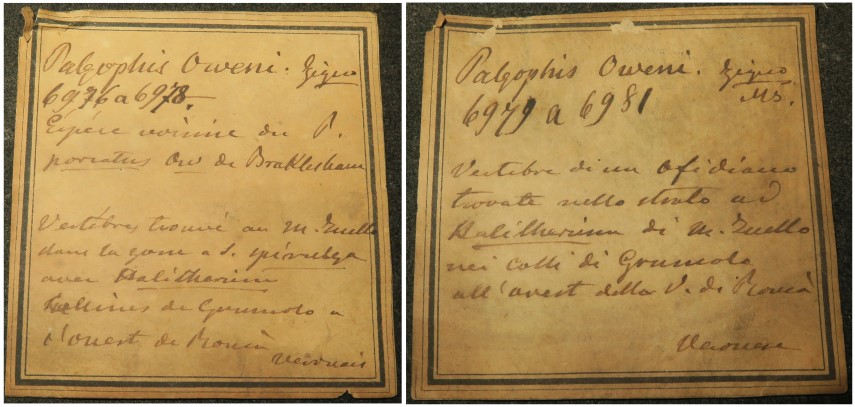 Paleophis Oweni. Zigno
6976 a 6978.
Espéce voisine du P.
porcatus Ow de Braklesham
Vertébres trouvé au M. Zuello
dans la zone a S. spirulæa
avec Halitherium
Collines de Grumolo a
l'ouest de Roncà
Veronais
Paleophis Oweni. Zigno
6979 a 6981 MS.
Vertebre di un ofidiano
trovate nello strato ad
Halitherium di M. Zuello
nei colli di Grumolo
all'ovest della V. di Roncà
Veronese